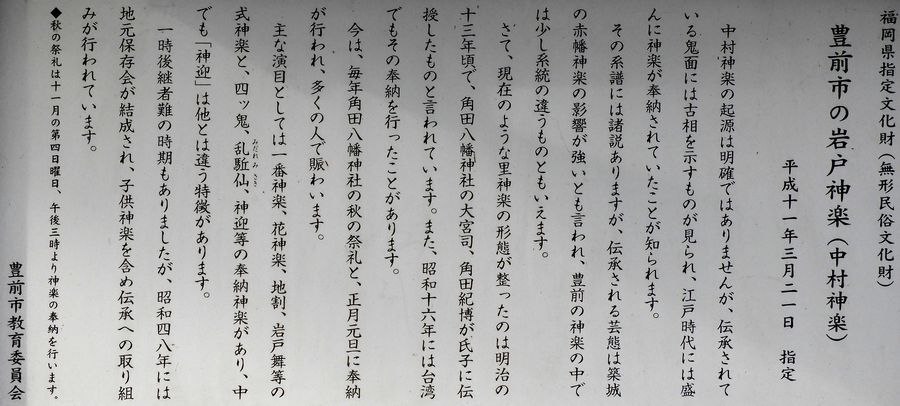 福岡県指定文化財（無形民俗文化財）
豊前市の岩戸神楽（中村神楽）
平成十一年三月二一日　指定
中村神楽の起源は明確ではありませんが、伝承されて
いる鬼面には古相を示すものが見られ、江戸時代には盛
んに神楽が奉納されていたことが知られます。
その系譜には諸説ありますが、伝承される芸態は築城
の赤幡神楽の影響が強いとも言われ、豊前の神楽の中で
は少し系統の違うものともいえます。
さて、現在のような里神楽の形態が整ったのは明治の
十三年頃で、角田八幡神社の大宮司、角田紀博が氏子に伝
授したものと言われています。また、昭和十六年には台湾
でもその奉納を行ったことがあります。
今は、毎年角田八幡神社の秋の祭礼と、正月元旦に奉納
が行われ、多くの人で賑わいます。
主な演目としては一番神楽、花神楽、地割、岩戸舞等の
式神楽と、四ッ鬼、乱駈仙、神迎等の奉納神楽があり、中
みだれみ　さき
でも「神迎」は他とは違う特徴があります。
一時後継者難の時期もありましたが、昭和四八年には
地元保存会が結成され、子供神楽を含め伝承への取り組
みが行われています。
◆秋の祭礼は十一月の第四日曜日、午後三時より神楽の奉納を行います。
豊前市教育委員会